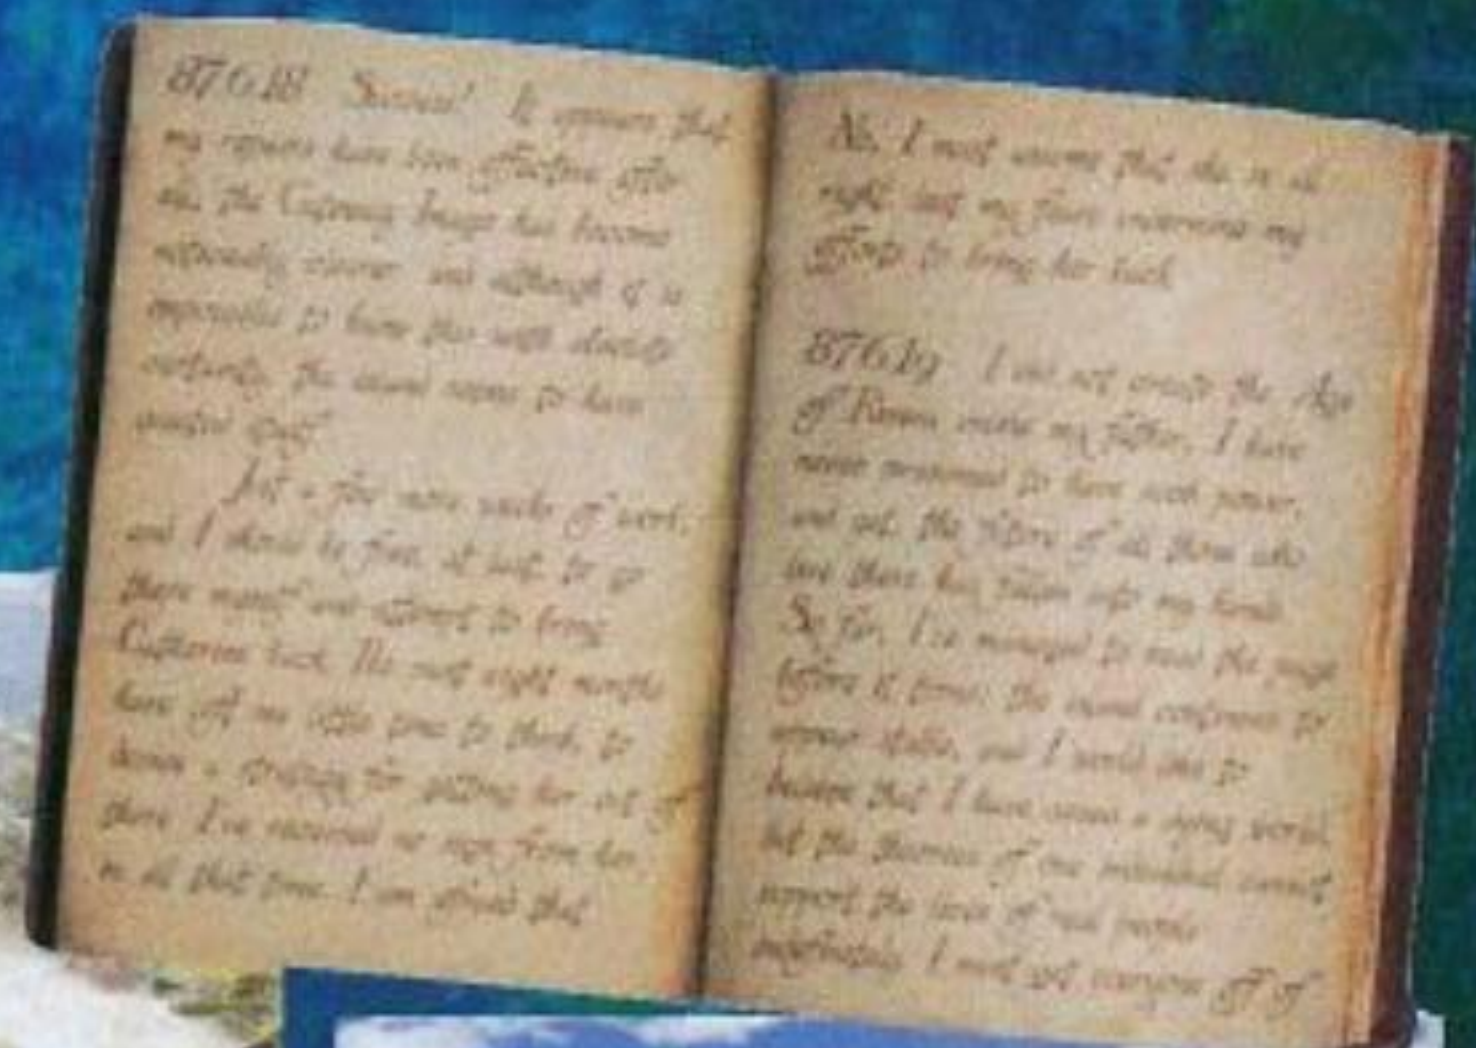 87.6.18 Success! It appears that
my repairs have been effective after
all. The Gateway Image has become
noticeably clearer and although it is
impossible to know this with absolute
certainty, the island seems to have
itself.
Just a few more weeks of work,
and I should be free, at last, to go
there myself and attempt to bring
Catherine back. The past eight months
have left me little time to think, to
a strategy for getting her out of
there. I've received no sign from her,
in all that time. I am afraid that
No, I must assume that she is all
right lest my fears undermine my
efforts to bring her back.
87.6.19 I did not create the Age
of Riven unlike my father, I have
never presumed to have such power,
and yet, the future of all those who
live there has fallen into my hands.
So far, I've managed to the
before it the island continues to
appear stable, and I would like to
believe that I have a dying world,
but the of one individual cannot
support the lives of real people
indefinitely. I must get everyone off of